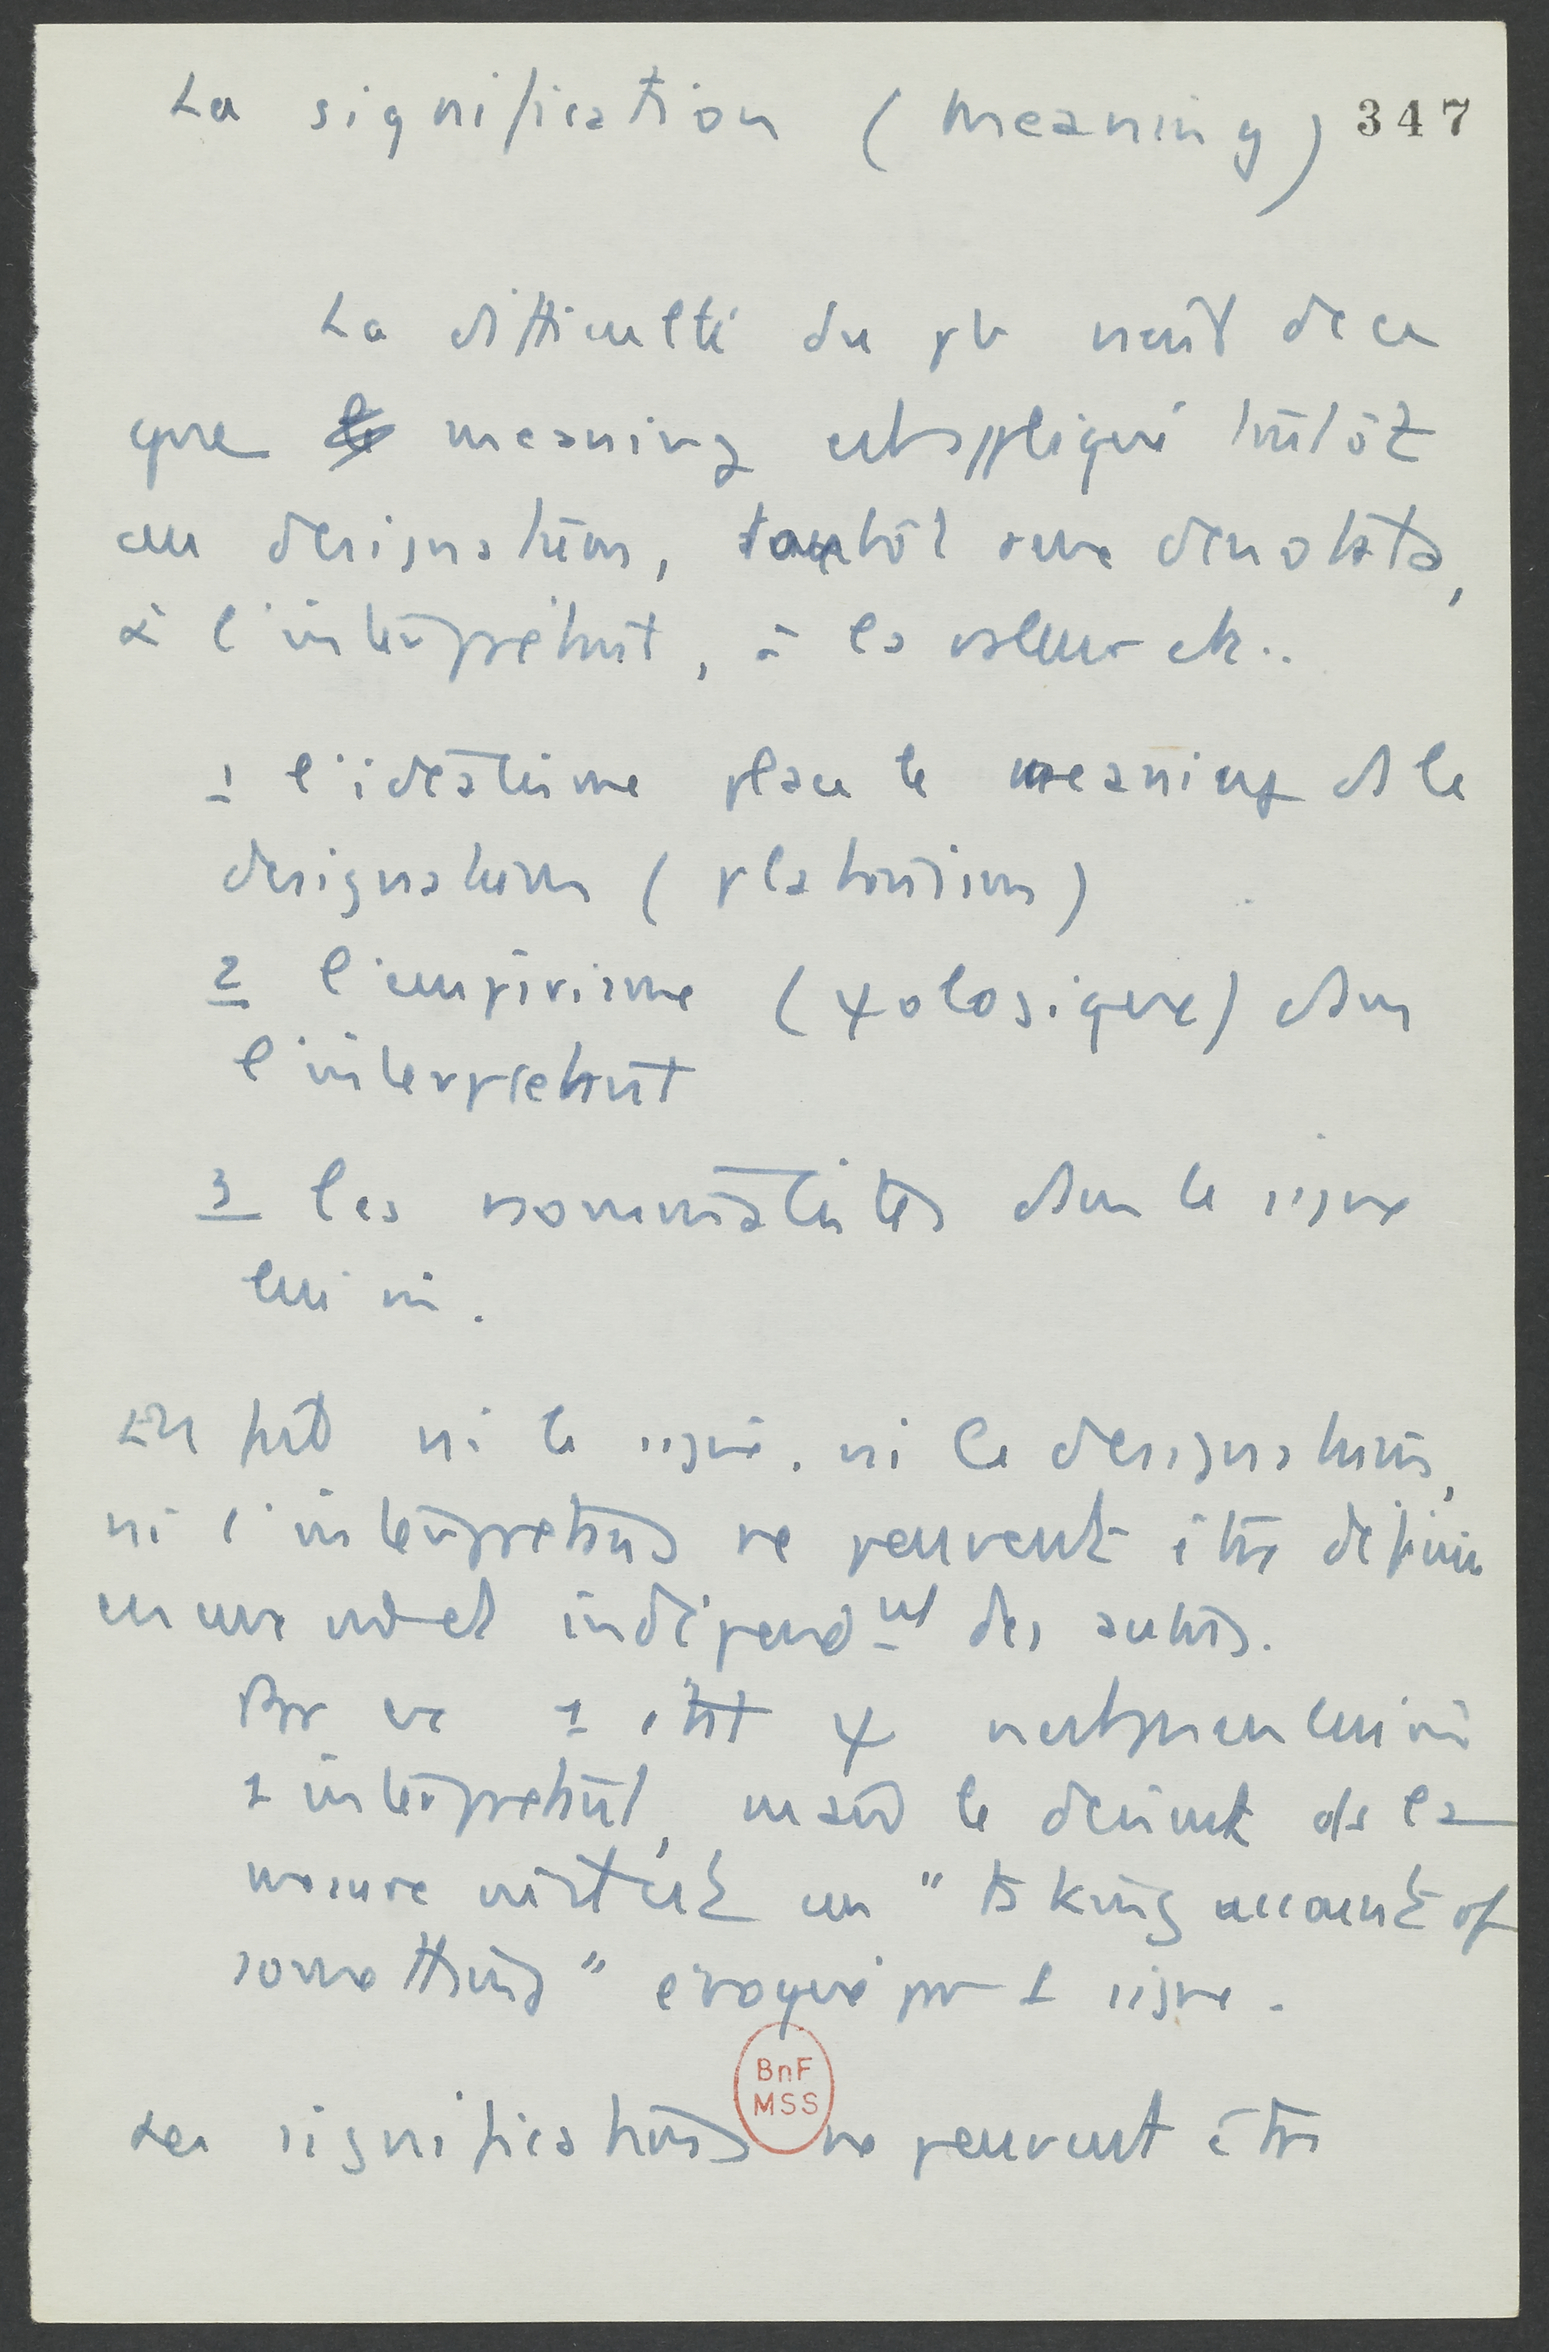 La signification (meaning) 347
La difficulté du pb vient de ce
que le meaning est appliqué tantôt
au designatum, tantôt aux denotata,
à l'interprétant, à la valeur etc..
1 l'idéalisme place le meaning ds le
designatum (platonisme)
2 l'empirisme (ψologique) dans
l'interprétant
3 les nominalistes dans le signe
lui mm.
En fait ni le signe, ni le designatum,
ni l'interprétant ne peuvent être définis
indépendnt des autres.
Par ex 1 état ψ n'est pas en lui mm
1 interprétant, mais le devient ds la
mesure où c'est un "taking account of
something" évoqué par 1 signe.
BnF
MSS
Les significations ne peuvent être